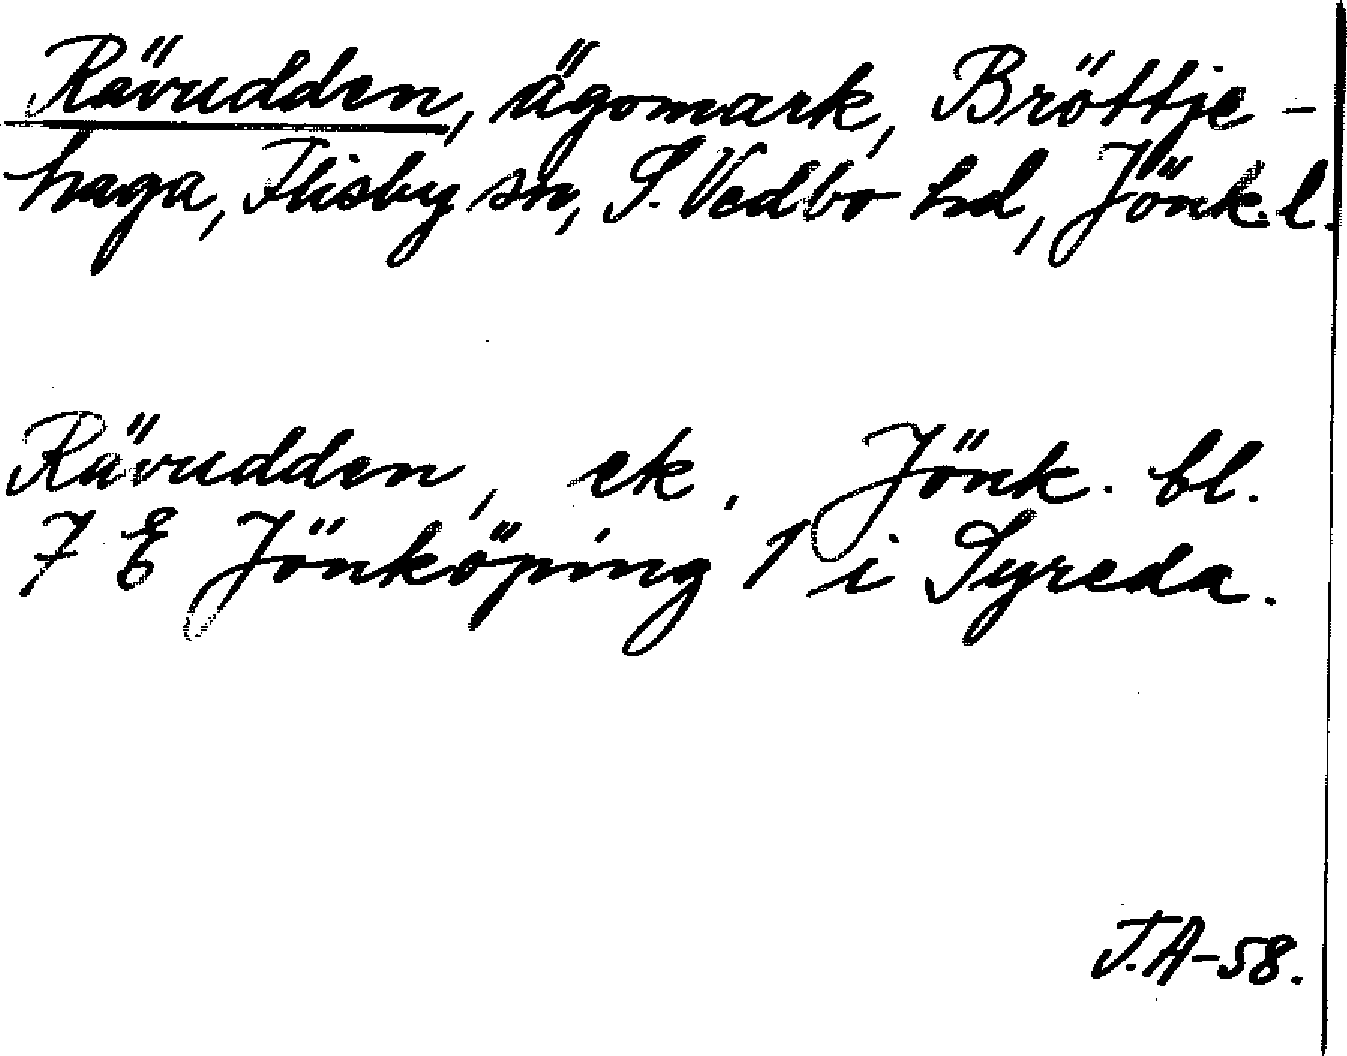 Rävudden, ägomark, Bröttje-
haga, Flisby sn, S. Vedbo hd, Jönk.l.
Rävudden, ek. Jönk. bl.
7 E Jönköping 1 i Syreda.
J.A-58.